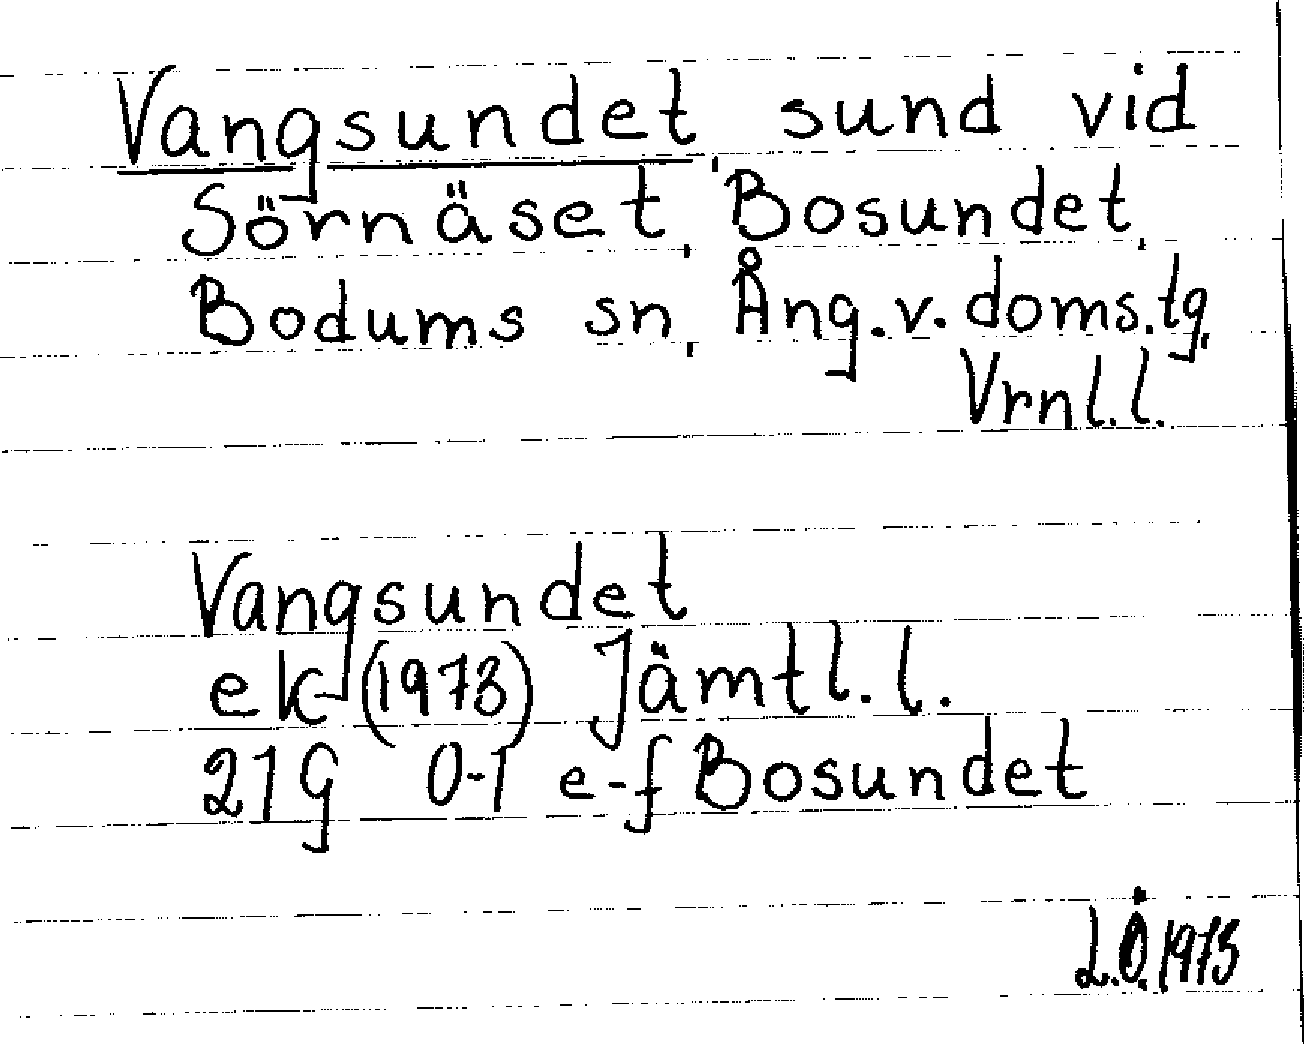 Vangsundet, sund vid
Sörnäset, Bosundet,
Bodums sn, Ång.v.doms.tg,
Vrnl.l.
Vangsundet
ek (1973) Jämtl.l.
21G 0-1 e-f Bosundet